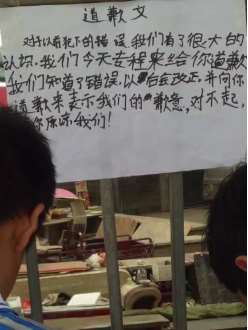 道歉文
对于以前犯下的错误,我们有了很大的
认识,我们今天去种来给你道歉
我们知道了错误,以后会改正,并向你
道歉来表示我们的歉意,对不起,
你原谅我们!